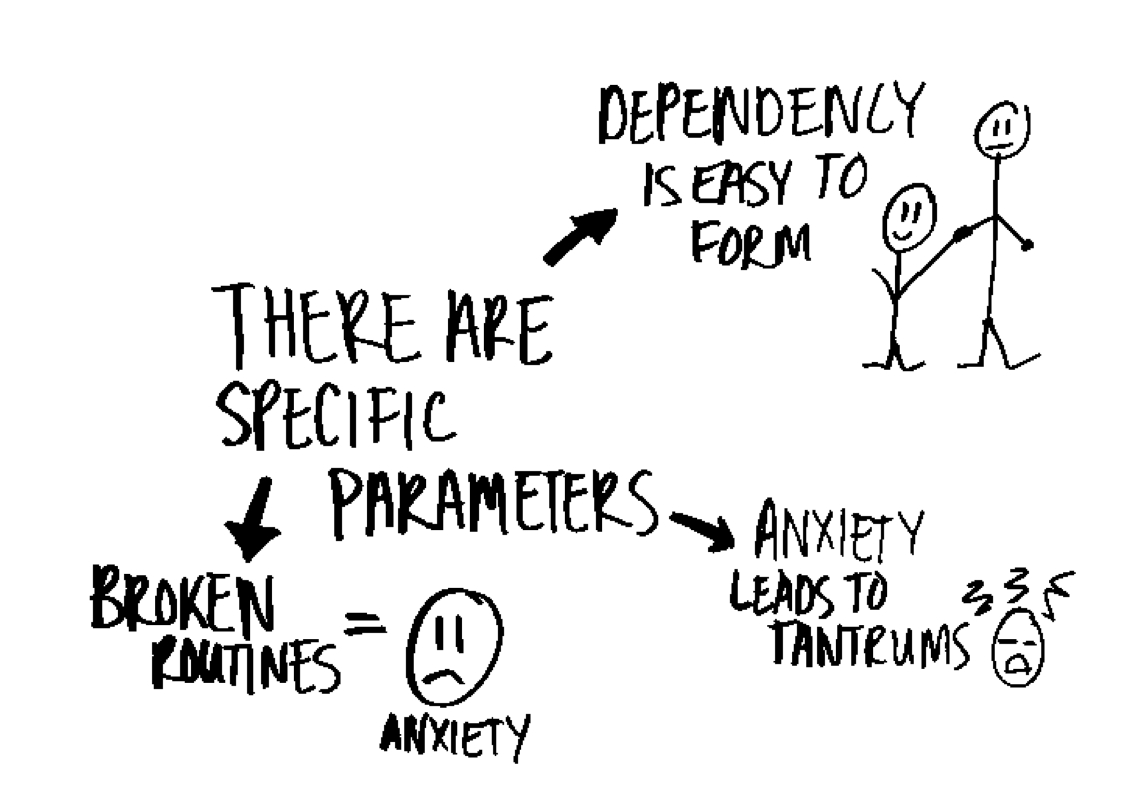 DEPENDENCY
IS EASY TO
FORM
THERE ARE
SPECIFIC
PARAMETERS
BROKEN
ROUTINES =
ANXIETY
ANXIETY
LEADS TO
TANTRUMS